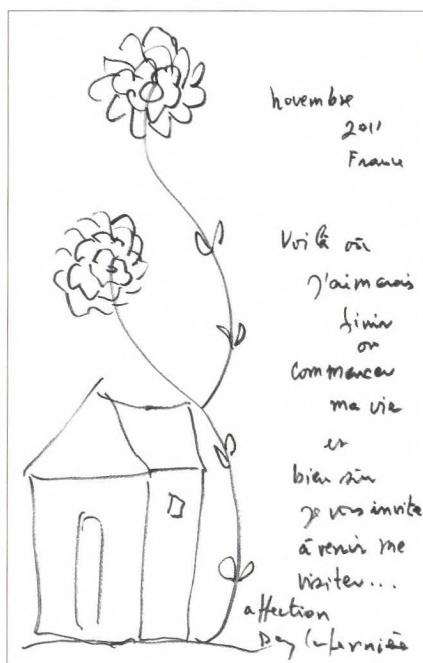 novembre
2011
France
Voilà où
j'aimerais
finir
or
commencer
ma vie
et
bien sûr
je vous invite
à venir me
visiter...
affection
Dany Laferrière